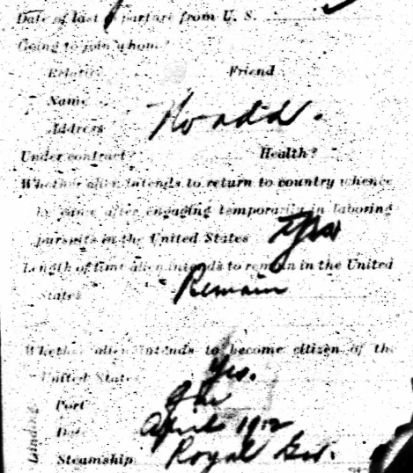 Date of last departure from U. S.
Going to join whom?
Relative Friend
Name
Address No add.
Under contract? Health?
Whether alien intends to return to country whence
he came after engaging temporarily in laboring
pursuits in the United States
Length of time alien intends to remain in the United
States Remain
Whether alien intends to become citizen of the
United States Yes.
Port
Date April 1912
Steamship Royal Geo.
Landing